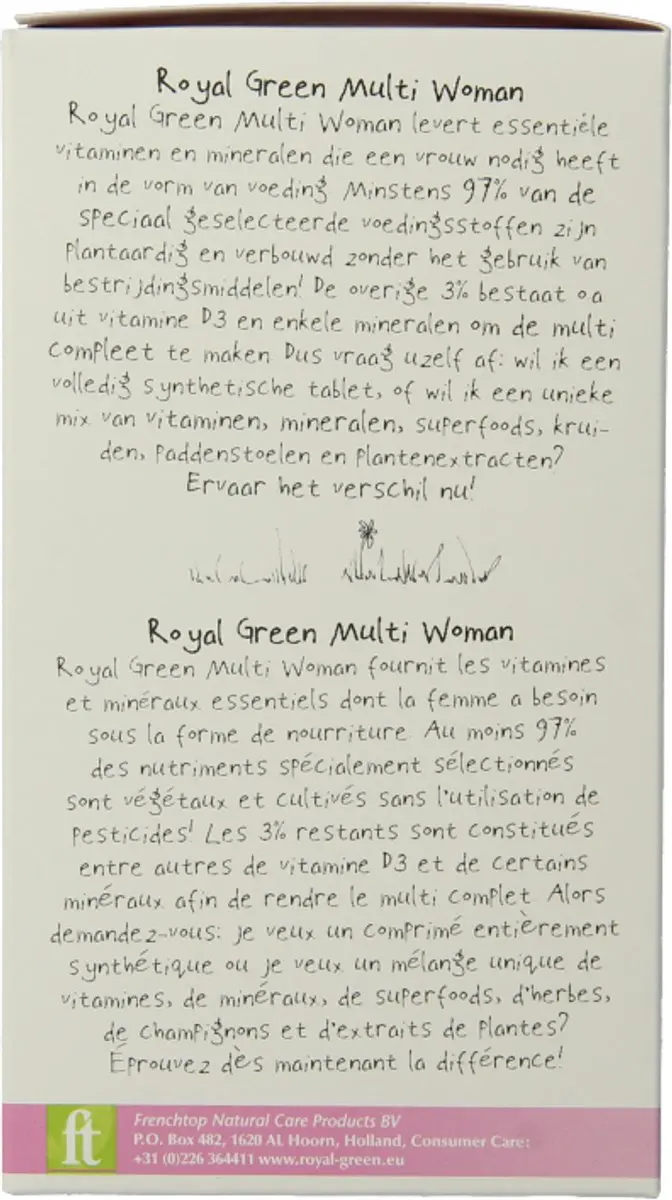 Royal Green Multi Woman
Royal Green Multi Woman levert essentiële
vitaminen en mineralen die een vrouw nodig heeft
in de vorm van voeding Minstens 97% van de
speciaal geselecteerde voedingsstoffen zijn
plantaardig en verbouwd zonder het gebruik van
bestrijdingsmiddelen! De overige 3% bestaat oa
uit vitamine D3 en enkele mineralen om de multi
compleet te maken Dus vraag uzelf af: wil ik een
volledig synthetische tablet, of wil ik een unieke
mix van vitaminen, mineralen, superfoods, krui-
den, paddenstoelen en plantenextracten?
Ervaar het verschil nu!
Royal Green Multi Woman
Royal Green Multi Woman fournit les vitamines
et minéraux essentiels dont la femme a besoin
sous la forme de nourriture Au moins 97%
des nutriments spécialement sélectionnés
sont végétaux et cultivés sans l'utilisation de
pesticides! Les 3% restants sont constitués
entre autres de vitamine D3 et de certains
minéraux afin de rendre le multi complet Alors
demandez-vous: je veux un comprimé entièrement
synthétique ou je veux un mélange unique de
vitamines, de minéraux, de superfoods, d'herbes,
de champignons et d'extraits de plantes?
Éprouvez dès maintenant la différence!
ft
Frenchtop Natural Care Products BV
P.O. Box 482, 1620 AL Hoorn, Holland, Consumer Care:
+31 (0)226 364411 www.royal-green.eu